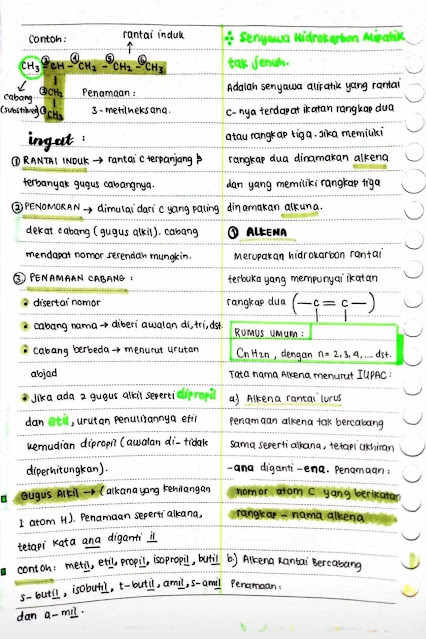 Contoh:
rantai induk
CH3 ③CH - ④CH2 - ⑤CH2 - ⑥CH3
②CH2
①CH3
cabang
(substituen)
Penamaan:
3-metilheksana.
ingat :
① RANTAI INDUK → rantai C terpanjang &
terbanyak gugus cabangnya.
② PENOMORAN → dimulai dari C yang paling
dekat cabang (gugus alkil). cabang
mendapat nomor serendah mungkin.
③ PENAMAAN CABANG :
disertai nomor
cabang nama → diberi awalan di, tri, dst.
Cabang berbeda → menurut urutan
abjad
Jika ada 2 gugus alkil seperti dipropil
dan etil, urutan penulisannya etil
kemudian dipropil (awalan di- tidak
diperhitungkan).
Gugus Alkil → (alkana yang kehilangan
1 atom H). Penamaan seperti alkana,
tetapi kata ana diganti il
contoh: metil, etil, propil, isopropil, butil
s-butil, isobutil, t-butil, amil, s-amil
dan a-mil.
Senyawa Hidrokarbon Alipatik
tak jenuh.
Adalah senyawa alifatik yang rantai
C-nya terdapat ikatan rangkap dua
atau rangkap tiga. Jika memiliki
rangkap dua dinamakan alkena
dan yang memiliki rangkap tiga
dinamakan alkuna.
① ALKENA
Merupakan hidrokarbon rantai
terbuka yang mempunyai ikatan
rangkap dua (-C=C-)
RUMUS UMUM :
CnH2n, dengan n= 2,3,4,... dst.
Tata nama Alkena menurut IUPAC:
a) Alkena rantai lurus
Penamaan alkena tak bercabang
sama seperti alkana, tetapi akhiran
-ana diganti -ena. Penamaan:
nomor atom C yang berikatan
rangkap - nama alkena
b) Alkena Rantai Bercabang
Penamaan: